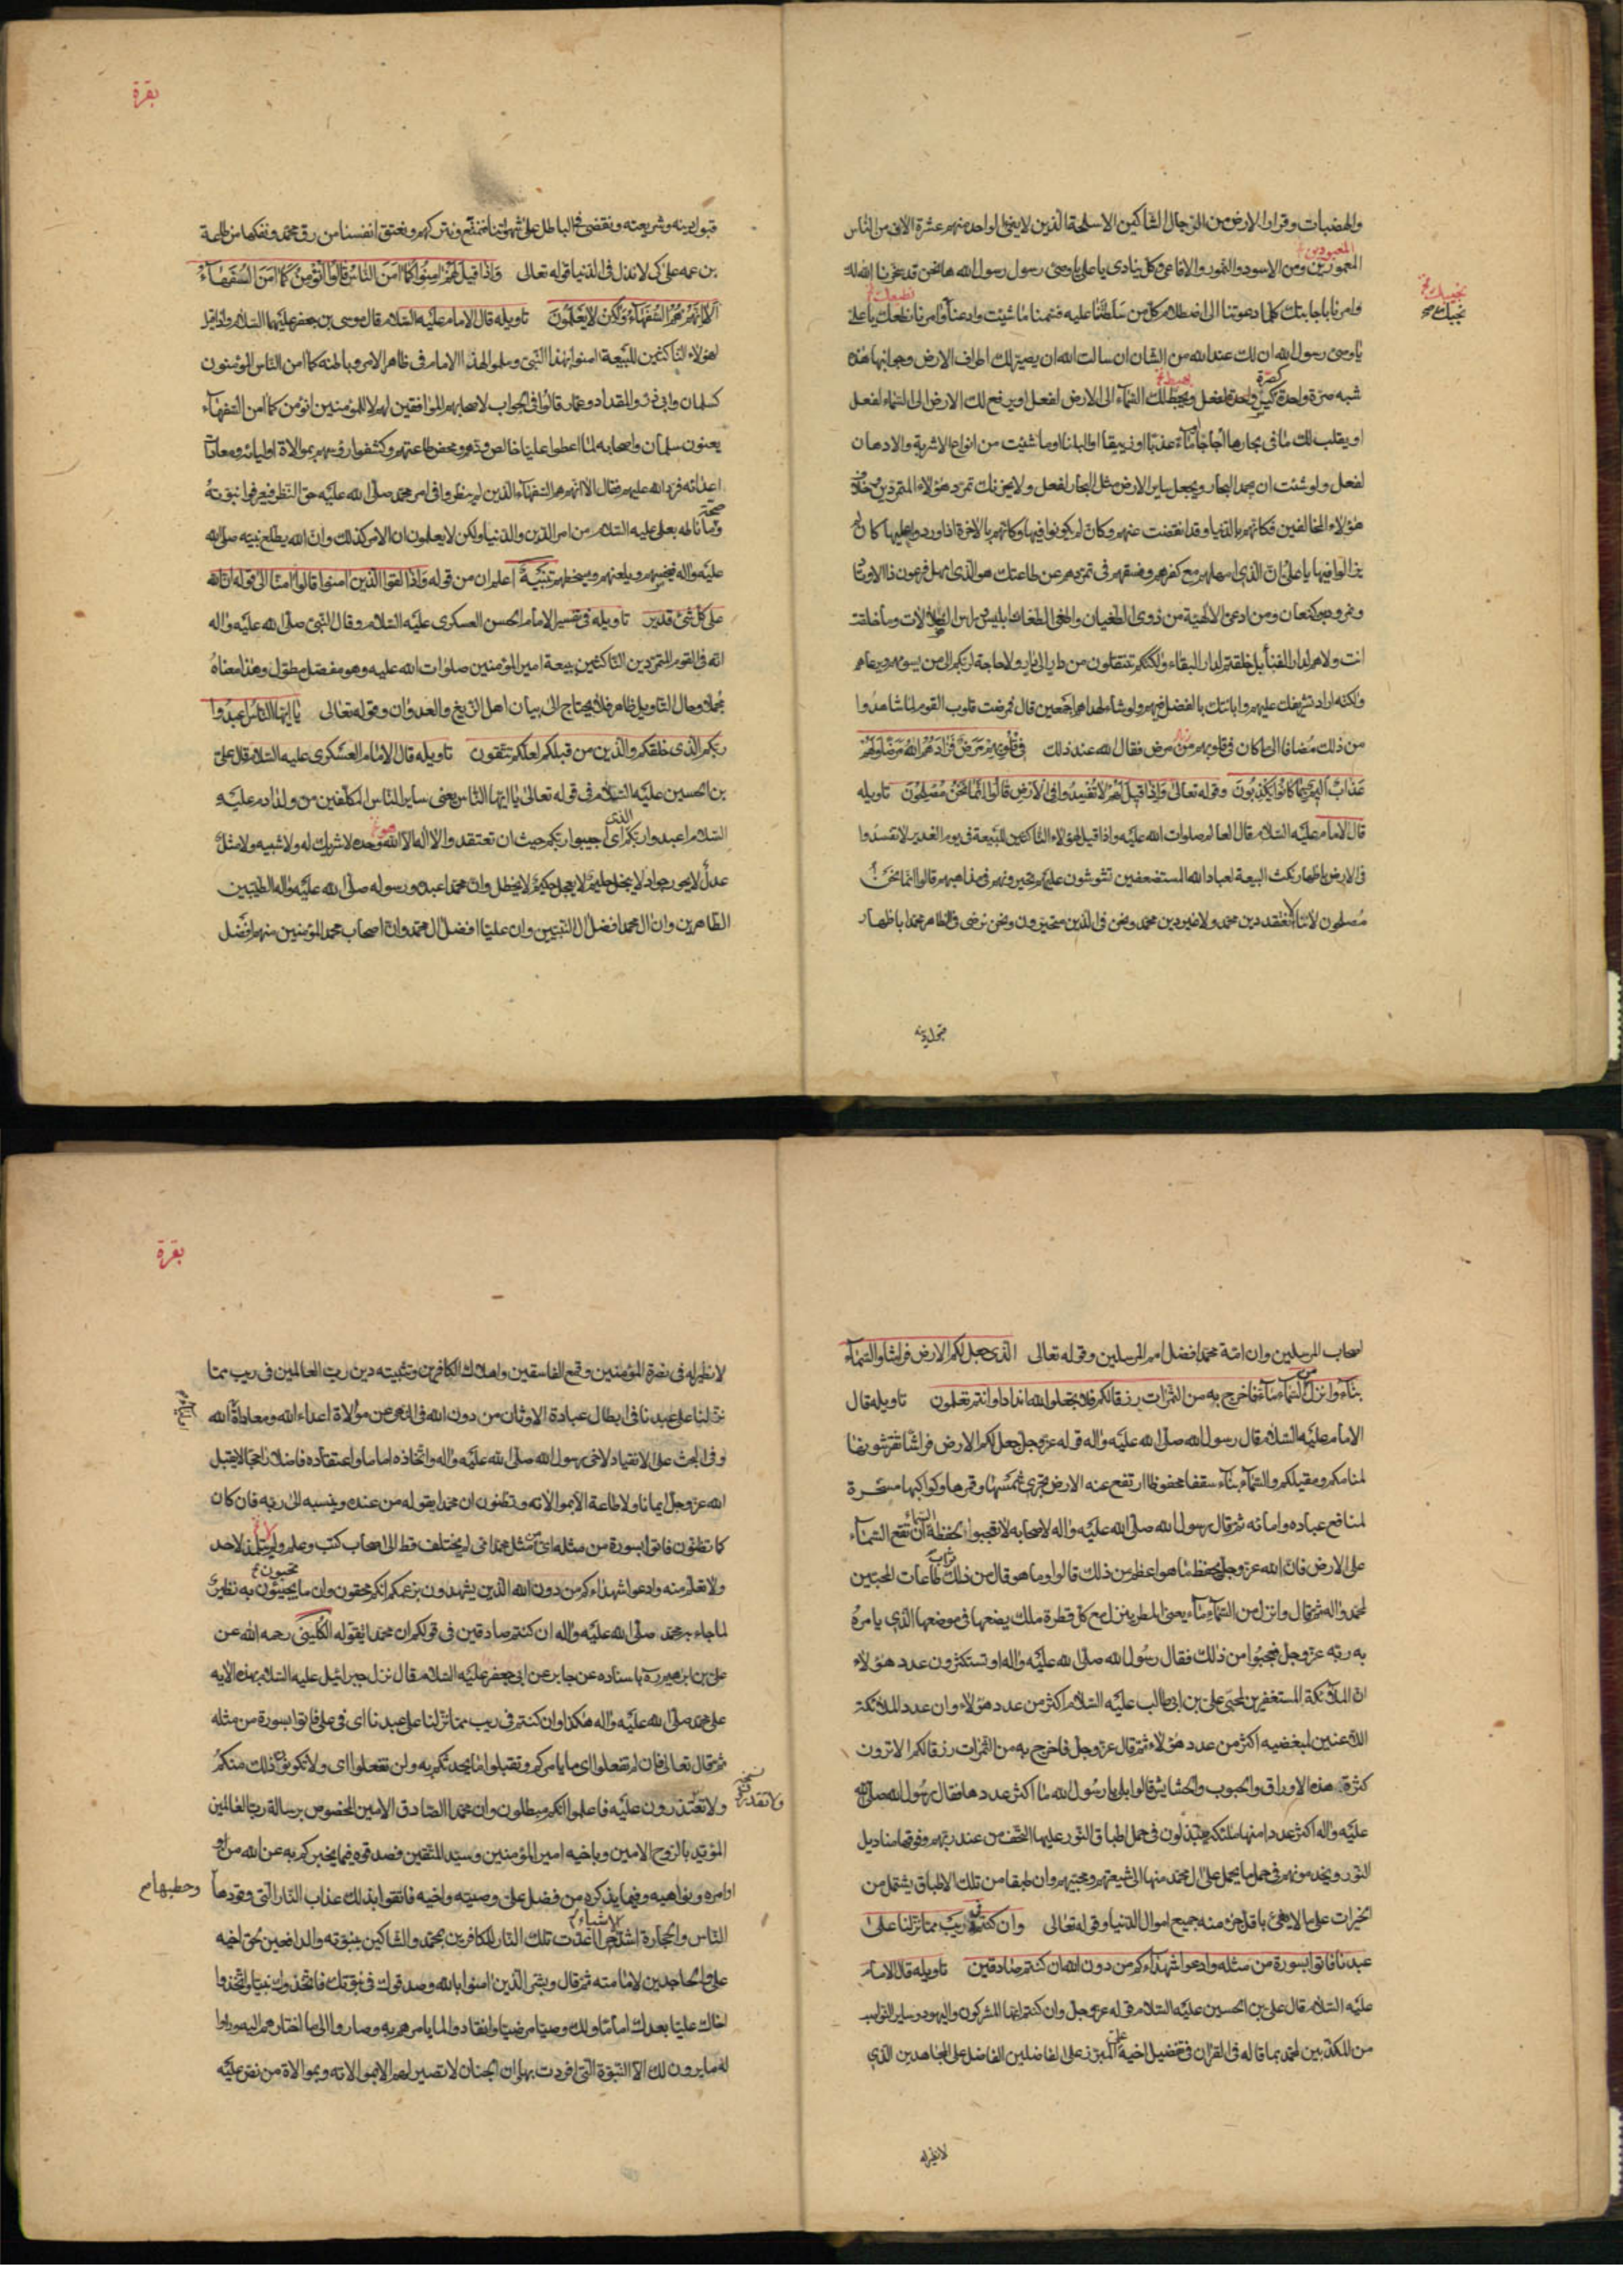 والهضبات وقرار الارض من الرجال الشاكين الاسلحة الذين لا يفي لواحد منهم عشرة الاف من الناس
المعبودين خ
المعمورين ومن الاسود والنمور والافاعي وكل ينادي يا علي يا وصي رسول رسول الله ها نحن قد سخرنا الله لك
وامرنا باجابتك كلما دعوتنا الى اصطلام كل من سلطتنا عليه فتمنا ما شئت وادعنا وامرنا نطعك يا علي
نطعك خ
نجيبك خ
نجبك صح
يا وصي رسول الله ان لك عند الله من الشان ان سالت الله ان يصير لك اطراف الارض وجوانبها هذه
كصرة
شبه صرة واحدة كيس واحدة لفعل ويحط لك السماء الى الارض لفعل او يرفع لك الارض الى السماء لفعل
يحبط خ
او يقلب لك ما في بحارها اجاجا ماء عذبا او زيبقا او البانا او ما شئت من انواع الاشربة والادهان
لفعل ولو شئت ان يجمد البحار ويجعل ساير الارض مثل البحار لفعل ولا يحزنك تمرد هؤلاء المتمردين وخلاف
هؤلاء المخالفين فكانهم بالدنيا وقد انقضت عنهم وكان لم يكونوا فيها وكانهم بالاخرة اذا وردوا عليها كان لم
يزالوا فيها يا علي ان الذي امهلهم مع كفرهم وفسقهم في تمردهم عن طاعتك هو الذي امهل فرعون ذا الاوتاد
ونمرود بن كنعان ومن ادعى الالهية من ذوي الطغيان واطغى الطغاة ابليس راس الضلالات وما خلقت
انت ولا هم لدار الفنا بل خلقتم لدار البقاء ولكنكم تنتقلون من دار الى دار ولا حاجة لربكم الى من يسوسهم ويرعاهم
ولكنه اراد تشريفك عليهم وابانتك بالفضل فيهم ولو شاء لهداهم اجمعين قال فمرضت قلوب القوم لما شاهدوا
من ذلك مضافا الى ما كان في قلوبهم من مرض فقال الله عند ذلك في قلوبهم مرض فزادهم الله مرضا ولهم
عذاب اليم بما كانوا يكذبون وقوله تعالى واذا قيل لهم لا تفسدوا في الارض قالوا انما نحن مصلحون تاويله
قال الامام عليه السلام قال العالم صلوات الله عليه واذا قيل لهؤلاء الناكثين للبيعة في يوم الغدير لا تفسدوا
في الارض باظهار نكث البيعة لعباد الله المستضعفين تشوشون عليهم تحيرونهم في مذاهبهم قالوا انما نحن
مصلحون لاننا لا نعتقد دين محمد ولا غير دين محمد ونحن في الدين متحيرون ونحن نرضى في الظاهر محمدا باظهار
قبول دينه
بقرة
قبول دينه وشريعته ونقضي في الباطل على شهواتنا فنتمتع ونتركهم ونعتق انفسنا من رق محمد ونفكها من طاعة
بن عمه علي كي لا نذل في الدنيا قوله تعالى واذا قيل لهم امنوا كما امن الناس قالوا انؤمن كما امن السفهاء
الا انهم هم السفهاء ولكن لا يعلمون تاويله قال الامام عليه السلام قال موسى بن جعفر عليهما السلام واذا قيل
لهؤلاء الناكثين للبيعة امنوا بهذا النبي وسلموا لهذا الامام في ظاهر الامر وباطنه كما امن الناس المؤمنون
كسلمان وابي ذر والمقداد وعمار قالوا في الجواب لاصحابهم الموافقين لهم لا للمؤمنين انؤمن كما امن السفهاء
يعنون سلمان واصحابه لما اعطوا عليا خالص ودهم ومحض طاعتهم وكشفوا رؤسهم بموالاة اوليائه ومعاداة
اعدائه فرد الله عليهم فقال الا انهم هم السفهاء الذين لم ينظروا في امر محمد صلى الله عليه حق النظر فيعرفوا نبوته
صحة
وما ناطه بعلي عليه السلام من امر الدين والدنيا ولكن لا يعلمون ان الامر كذلك وان الله يطلع نبيه صلى الله
عليه واله فيخسهم ويلعنهم ويسخطهم تنبيه اعلم ان من قوله واذا لقوا الذين امنوا قالوا امنا الى قوله ان الله
على كل شيء قدير تاويله في تفسير الامام الحسن العسكري عليه السلام وقال النبي صلى الله عليه واله
انه في القوم المتمردين الناكثين بيعة امير المؤمنين صلوات الله عليه وهو مفصل مطول وهذا معناه
مجملا وحال التاويل ظاهر فلا يحتاج الى بيان اهل الزيغ والعدوان وقوله تعالى يا ايها الناس اعبدوا
ربكم الذي خلقكم والذين من قبلكم لعلكم تتقون تاويله قال الامام العسكري عليه السلام قال علي
بن الحسين عليه السلام في قوله تعالى يا ايها الناس يعني ساير الناس المكلفين من ولد ادم عليه
السلام اعبدوا ربكم اي اجيبوا ربكم حيث ان تعتقدوا الا اله الا الله وحده لا شريك له ولا شبيه ولا مثل
عدل لا يجور جواد لا يبخل حليم لا يعجل حكيم لا يخطل وان محمدا عبده ورسوله صلى الله عليه واله الطيبين
الطاهرين وان ال محمد افضل ال النبيين وان عليا افضل ال محمد وان اصحاب محمد المؤمنين منهم افضل
اصحاب المرسلين وان امة محمد افضل امم المرسلين وقوله تعالى الذي جعل لكم الارض فراشا والسماء
بناء وانزل من السماء ماء فاخرج به من الثمرات رزقا لكم فلا تجعلوا لله اندادا وانتم تعلمون تاويله قال
الامام عليه السلام قال رسول الله صلى الله عليه واله قوله عز وجل جعل لكم الارض فراشا تفترشونها
لمنامكم ومقيلكم والسماء بناء سقفا محفوظا ارتفع عنه الارض تجري شمسها وقمرها وكواكبها مسخرة
لمنافع عباده وامائه ثم قال رسول الله صلى الله عليه واله لاصحابه لا تعجبوا لحفظه ان تقع السماء
على الارض فان الله عز وجل يحفظ ما هو اعظم من ذلك قالوا وما هو قال من ذلك ثواب طاعات المحبين
لمحمد واله ثم قال وانزل من السماء ماء يعني المطر ينزل مع كل قطرة ملك يضعها في موضعها الذي يامره
به ربه عز وجل فعجبوا من ذلك فقال رسول الله صلى الله عليه واله او تستكثرون عدد هؤلاء
ان الملائكة المستغفرين لمحبي علي بن ابي طالب عليه السلام اكثر من عدد هؤلاء وان عدد الملائكة
اللاعنين لمبغضيه اكثر من عدد هؤلاء ثم قال عز وجل فاخرج به من الثمرات رزقا لكم الا ترون
كثرة هذه الاوراق والحبوب والحشايش قالوا بلى يا رسول الله ما اكثر عددها فقال رسول الله صلى الله
عليه واله اكثر عددا منها ملئكة يبتذلون في حمل اطباق النور عليها التحف من عند ربهم وفوقها مناديل
النور ويخدمونهم في حمل ما يحمل على ال محمد منها الى شيعتهم ومحبيهم وان طبقا من تلك الاطباق يشتمل من
الخيرات على ما لا يفي باقل جزء منه جميع اموال الدنيا وقوله تعالى وان كنتم في ريب مما نزلنا على
عبدنا فاتوا بسورة من مثله وادعوا شهداءكم من دون الله ان كنتم صادقين تاويله قال الامام
عليه السلام قال علي بن الحسين عليه السلام قوله عز وجل وان كنتم ايها المشركون واليهود وساير النواصب
من المكذبين لمحمد بما قاله في القران في تفضيل اخيه علي المبرز على الفاضلين الفاضل على المجاهدين الذي
لا نظير له
بقرة
لا نظير له في نصرة المؤمنين وقمع الفاسقين واهلاك الكافرين وتثبيته دين رب العالمين في ريب مما
نزلنا على عبدنا في ابطال عبادة الاوثان من دون الله في النهي عن موالاة اعداء الله ومعاداة الله
وفي الحث على الانقياد لاخي رسول الله صلى الله عليه واله واتخاذه اماما واعتقاده فاضلا راجحا لا يقبل
الله عز وجل ايمانا ولا طاعة الا بموالاته وتظنون ان محمدا يقوله من عنده وينسبه الى ربه فان كان
كما تظنون فاتوا بسورة من مثله اي مثل محمد امي لم يختلف قط الى اصحاب كتب وعلم ولم يتلمذ لاحد
ولا تعلم منه وادعوا شهداءكم من دون الله الذين يشهدون بزعمكم انكم محقون وان ما يجيئون به نظير
تجيبون خ
لما جاء به محمد صلى الله عليه واله ان كنتم صادقين في قولكم ان محمدا تقوله الكليني رحمه الله عن
علي بن ابراهيم باسناده عن جابر عن ابي جعفر عليه السلام قال نزل جبرائيل عليه السلام بهذه الايه
على محمد صلى الله عليه واله هكذا وان كنتم في ريب مما نزلنا على عبدنا اي في علي فاتوا بسورة من مثله
ثم قال تعالى فان لم تفعلوا اي ما يامركم وتقبلوا ما يحدثكم به ولن تفعلوا اي ولا تكونوا ذلك منكم
ولا تعتذرون عليه فاعلموا انكم مبطلون وان محمدا الصادق الامين المخصوص برسالة رب العالمين
ولا تقدرون
المؤيد بالروح الامين وباخيه امير المؤمنين وسيد المتقين فصدقوه فيما يخبركم به عن الله من
اوامره ونواهيه وفيما يذكره من فضل علي وصيته واخيه فاتقوا بذلك عذاب النار التي وقودها
وحطبها م
الناس والحجارة اشد الاشياء حرا اعدت تلك النار للكافرين بمحمد والشاكين بنبوته والدافعين بحق اخيه
علي والجاحدين لامامته ثم قال وبشر الذين امنوا بالله وصدقوك في نبوتك فاتخذوك نبيا واتخذوا
اخاك عليا بعدك اماما ولك وصيا مرضيا وانقادوا لما يامرهم به وصاروا الى ما اختارهم اليه وراوا
له ما يرون لك الا النبوة التي افردت بها وان الجنان لا تصير لهم الا بموالاته وبموالاة من نص عليه